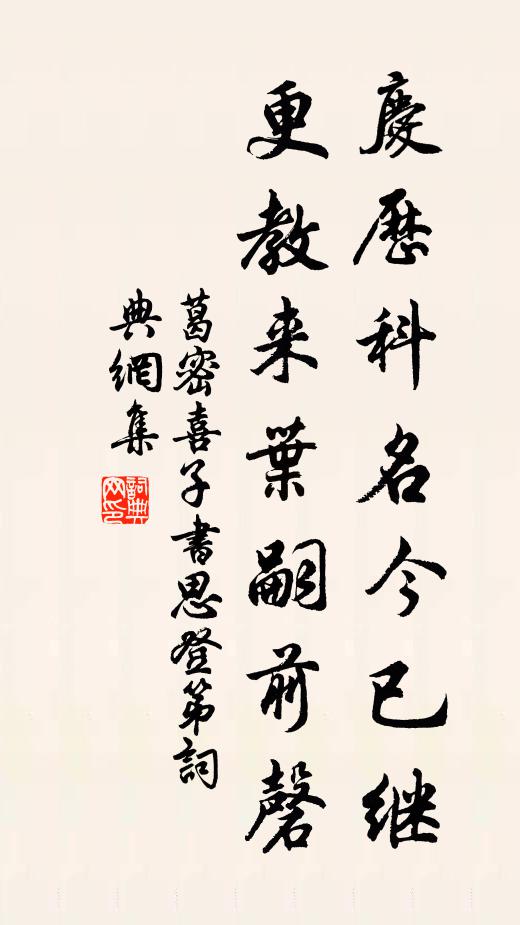 慶歷科名今已继
更教来葉嗣前磬
葛密喜子書思登第詞
典網集
詞典网印